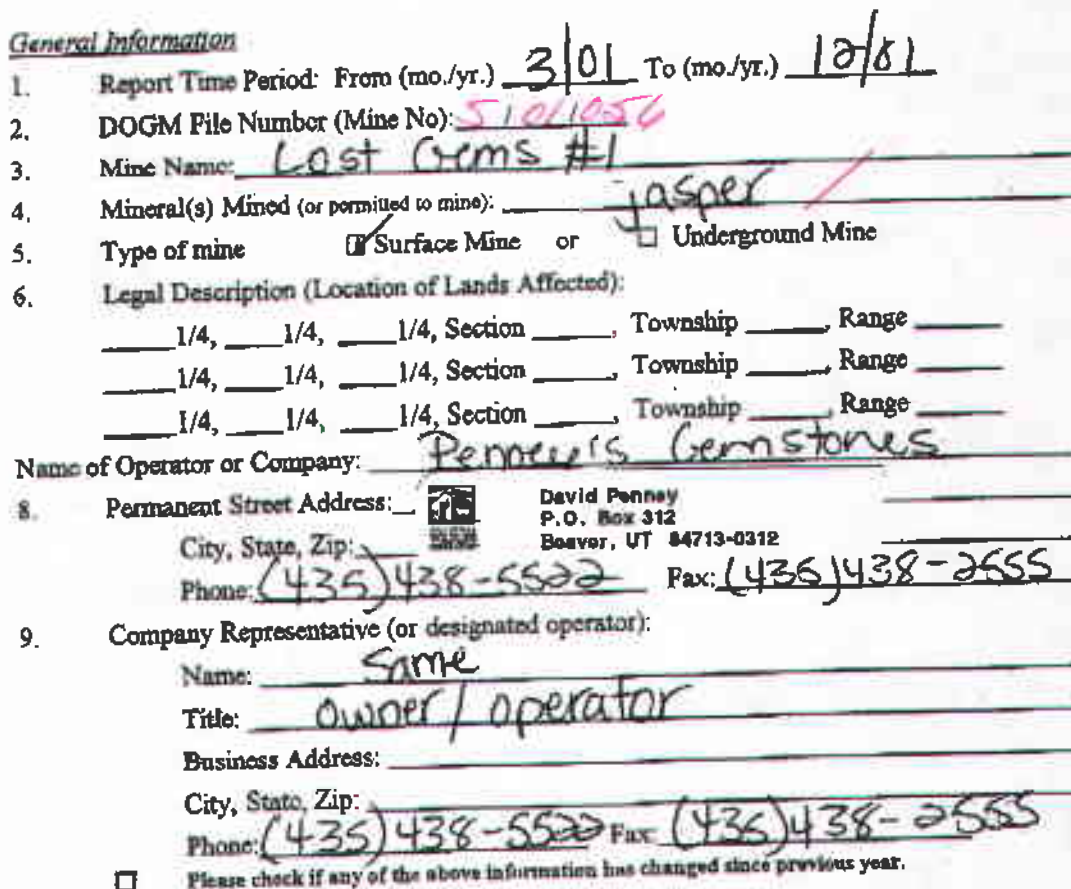 General Information
1. Report Time Period: From (mo./yr.) 3/01 To (mo./yr.) 12/01
2. DOGM File Number (Mine No):
3. Mine Name: Lost Gems #1
4. Mineral(s) Mined (or permitted to mine): jasper
5. Type of mine ☑ Surface Mine or ☐ Underground Mine
6. Legal Description (Location of Lands Affected):
_____1/4, ____1/4, ____1/4, Section _____, Township _____, Range _____
_____1/4, ____1/4, ____1/4, Section _____, Township _____, Range _____
_____1/4, ____1/4, ____1/4, Section _____, Township _____, Range _____
Name of Operator or Company: Penney's Gemstones
8. Permanent Street Address: David Penney
P.O. Box 312
City, State, Zip: Beaver, UT 84713-0312
Phone: (435)438-5522 Fax: (435)438-2555
9. Company Representative (or designated operator):
Name: Same
Title: owner/operator
Business Address:
City, State, Zip:
Phone: (435)438-5522 Fax: (435)438-2555
☐ Please check if any of the above information has changed since previous year.